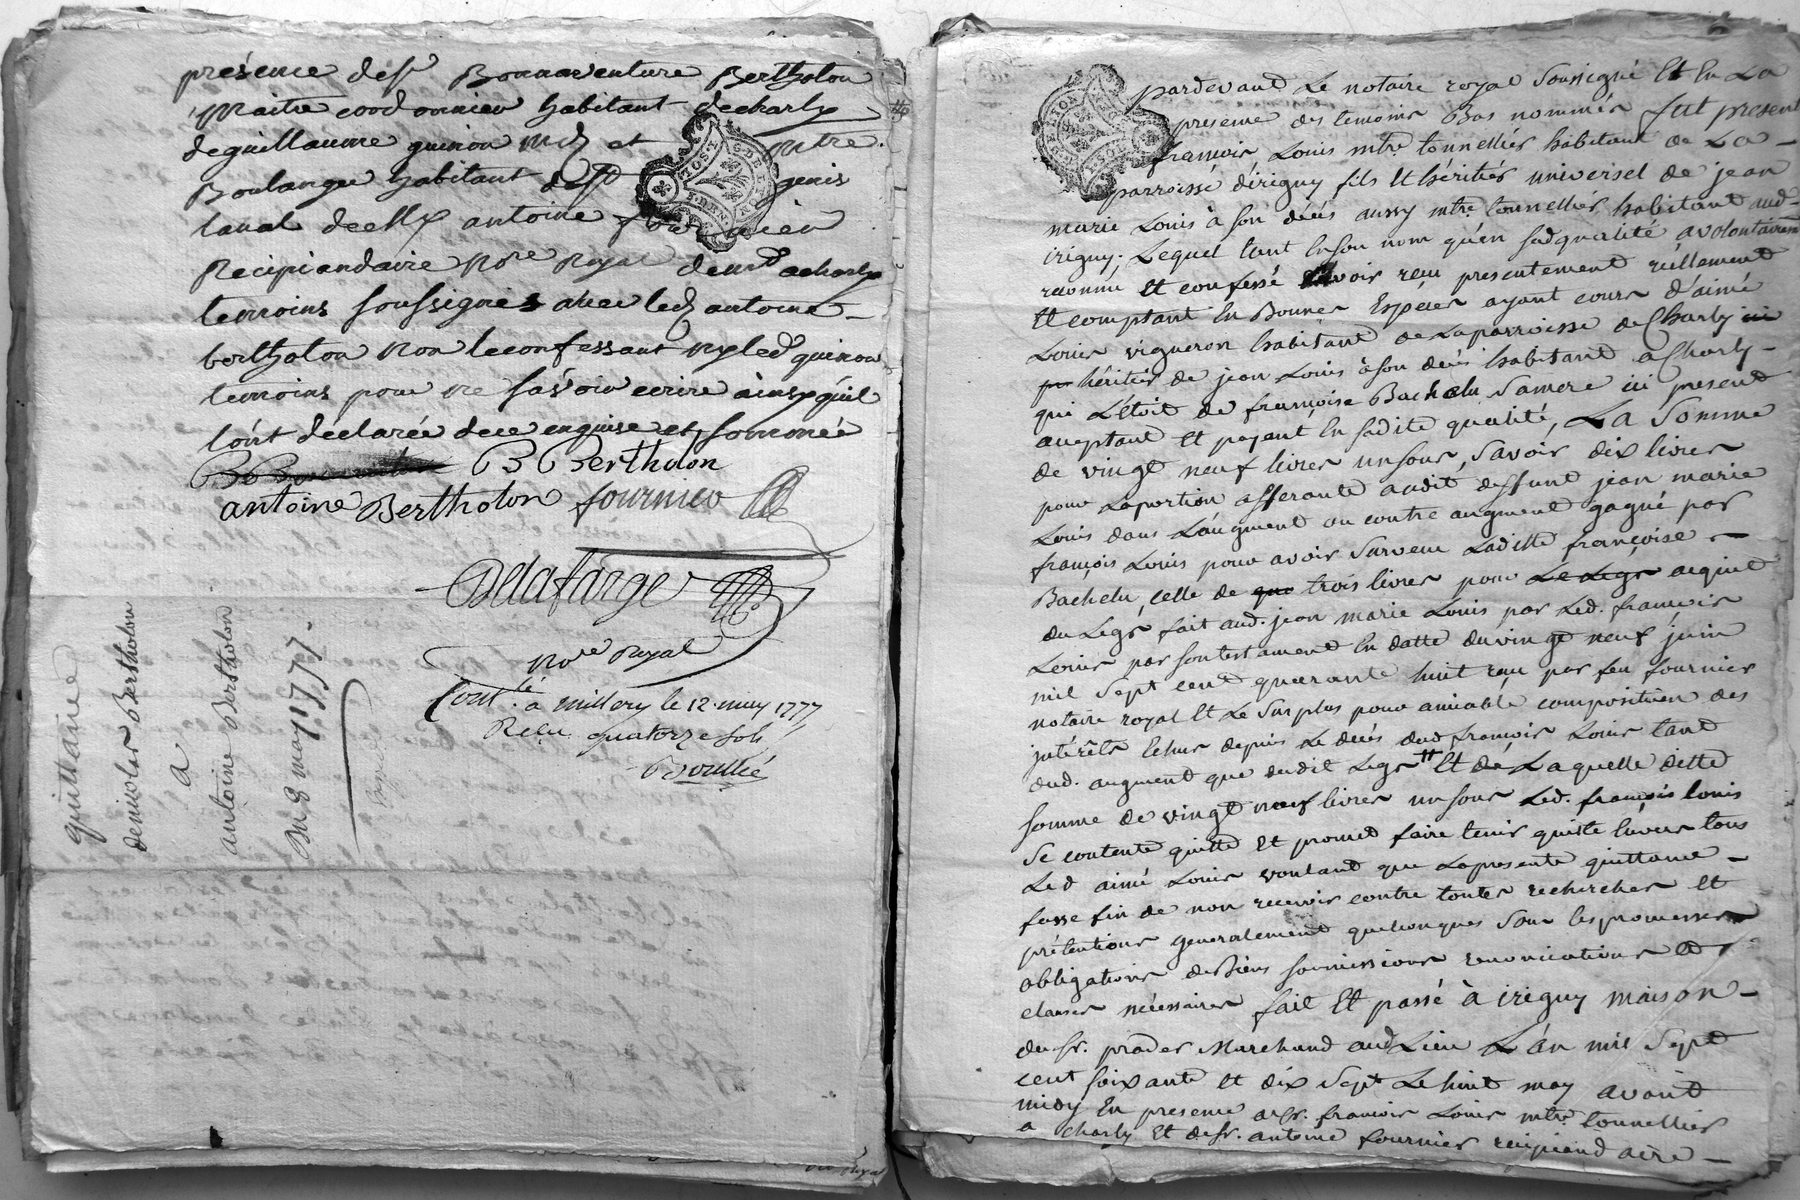 présence de sr Bonnaventure Bertholon
maitre cordonnier habitant de charly
de guillaume guinon md et mtre
Boulanger habitant de st genis
laval de me antoine fournier
Recipiandaire nore Royal demt a charly
temoins soussignés avec led antoine
bertholon non le confessant ny led guinon
temoins pour ne sçavoir ecrire ainsy quil
lont déclarée de ce enquise et sommée
B Berthelon
antoine Bertholon fournier
Delafarge
nore Royal
Contlé a millery le 12 may 1777
Reçu quatorze sols
Boullié
quittance
de nicolas Bertholon
a
antoine Bertholon
Du 8 may 1777.
pardevant Le notaire royal soussigné Et En La
presense des temoins Bas nommés fut present
françois Louis mtre tonnellier habitant de La
parroisse dirigny fils Et héritier universel de jean
marie Louis à son décés aussy mtre tonnellier habitant aud
irigny. Lequel tant En son nom qu'en sadqualité a volontairement
reconnu Et confessé avoir reçu presentement réellement
Et comptant En Bonnes Espéces ayant cours d'aimé
Louis vigneron habitant de La parroisse de Charly
héritier de jean Louis à son décés habitant a Charly
qui L'étoit de françoise Bachelu sa mere ici present
acceptant Et payant En sadite qualité, La somme
de vingt neuf livres un sous, savoir dix livres
pour La portion afferante audit deffunt jean marie
Louis dans L'augment ou contre augment gagné par
françois Louis pour avoir survecu Ladite françoise
Bachelu, celle de que trois livres pour Le Legs acquit
du Legs fait aud. jean marie Louis par Led. françois
Louis par son testament En datte du vingt neuf juin
mil sept cent quarante huit reçu par feu fournier
notaire royal Et Le surplus pour amiable composition des
intérêts Echus depuis Le décés dud françois Louis tant
dud. augment que dudit Legs Et de Laquelle ditte
somme de vingt neuf livres un sous Led. françois louis
se contente quitte Et promet faire tenir quitte Envers tous
Led aimé Louis voulant que La presente quittance
fasse fin de non recevoir contre toutes recherches Et
prétentions generalement quelconques sous les promesses
obligations de Biens soumissions renonciations Et
clauses nécessaires fait Et passé à irigny maison
du sr. prades Marchand aud Lieu L'an mil sept
cent soixante et dix sept Le huit may avant
midy En presense de sr. françois Louis mtre tonnellier
a charly Et de sr. antoine fournier recipiendaire